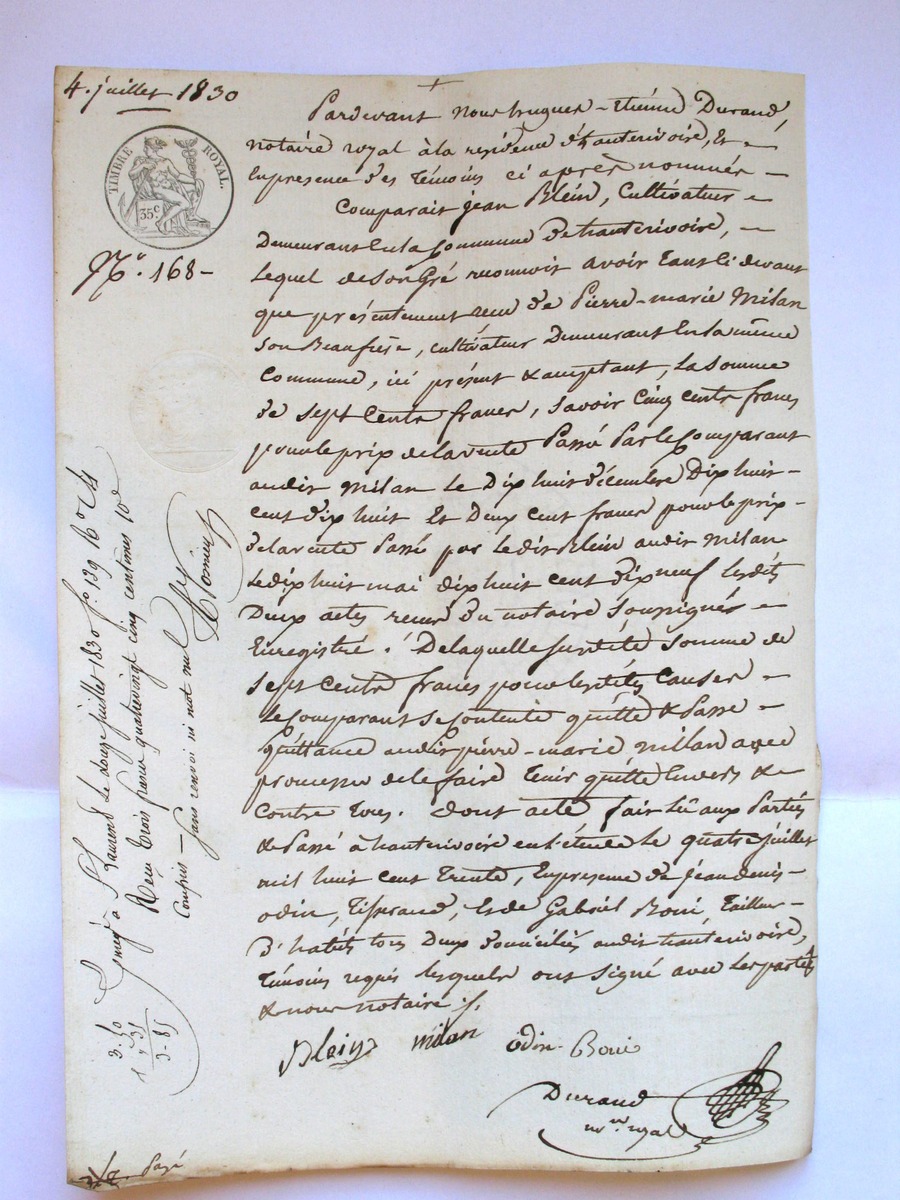 4. juillet 1830
TIMBRE ROYAL.
35c
N.o 168-
Pardevant Nous hugues-Etiénne Durand,
notaire royal à la residence d'hauterivoire, Et
En presence des Témoins ci aprés nommés
Comparait jean Blein, Cultivateur
Demeurant En la Commune de hauterivoire,
Lequel de Son Gré reconnoit avoir Tant Ci devant
que présentement reçu de Pierre-marie Milan
son Beaufrère, cultivateur Demeurant En la même
Commune, ici présent & acceptant, La Somme
de Sept Cents francs, Savoir Cinq Cents francs
pour le prix de la vente Passé Par le Comparant
audit Milan le Dix huit décembre Dix huit
cent dix huit Et Deux Cent francs pour le prix
de la vente Passé par le dit Blein audit Milan
Le dix huit mai dix huit cent dix neuf les dits
Deux actes recus Du notaire Soussigné
Enregistré. De laquelle Susdite Somme de
Sept Cents francs pour les dites Causes
Le Comparant Se Contente quitte & Passe
quittance audit pierre-marie Millan avec
promesse de le faire Tenir quitte Envers &
Contre Tous. Dont acte fait Lû aux Parties
& Passé à hauterivoire en l'étude le quatre juillet
mil huit Cent Trente, En présence de jean denis
odin, Tisserand, et de Gabriel Boni, Tailleur
d'habits tous Deux domiciliés audit hauterivoire,
Témoins requis lesquels ont Signé avec Les parties
& nous notaire ./.
Blein milan odin Boni
Durand
nre royal
Enregé à St Laurent Le douze juillet 1830 fo 139 Ro C 4
Reçu trois francs quatrevingt cinq centimes 10e
Compris - Sans renvoi ni mot nul
3-50
35
3-85
Payé